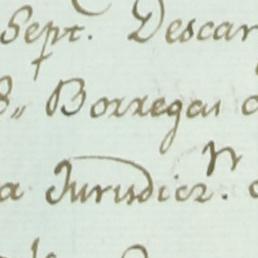 Sept. Descar
8,, Borregas
a Jurisdicc.n